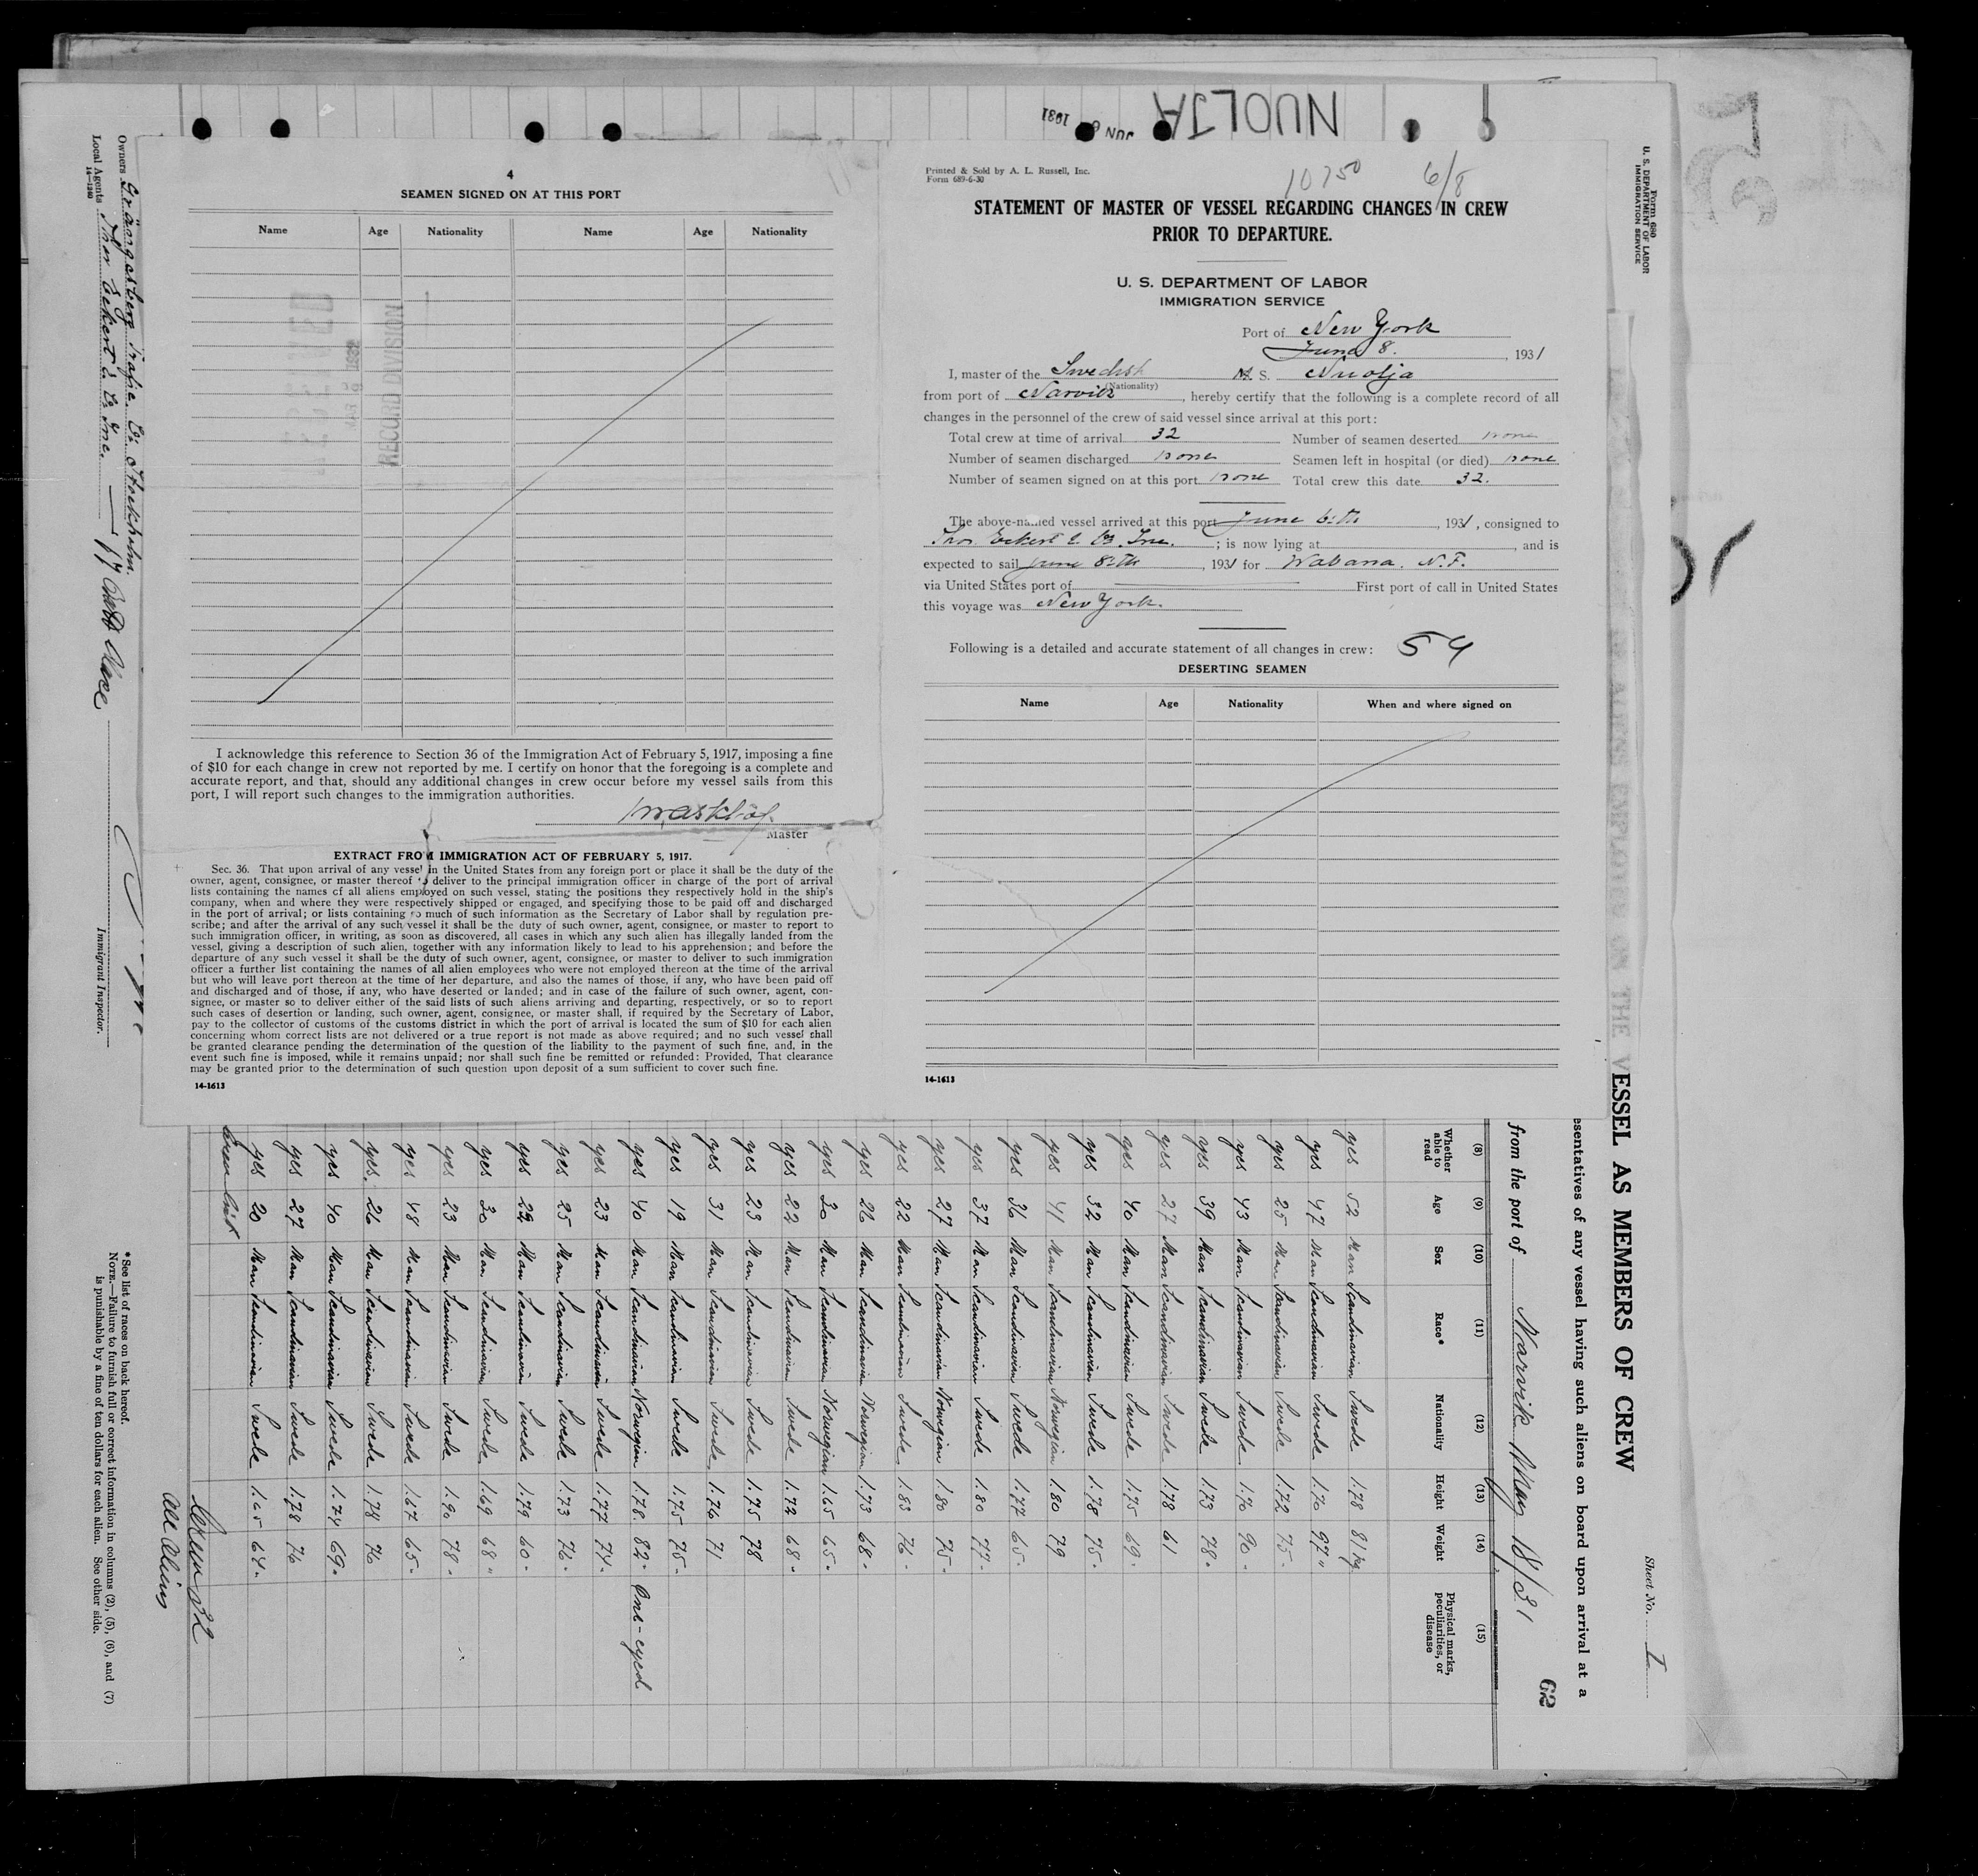 NUOLJA
JUN 1931
4
SEAMEN SIGNED ON AT THIS PORT
Name Age Nationality Name Age Nationality
RECORD DIVISION
I acknowledge this reference to Section 36 of the Immigration Act of February 5, 1917, imposing a fine
of $10 for each change in crew not reported by me. I certify on honor that the foregoing is a complete and
accurate report, and that, should any additional changes in crew occur before my vessel sails from this
port, I will report such changes to the immigration authorities.
Master
EXTRACT FROM IMMIGRATION ACT OF FEBRUARY 5, 1917.
Sec. 36. That upon arrival of any vessel in the United States from any foreign port or place it shall be the duty of the
owner, agent, consignee, or master thereof to deliver to the principal immigration officer in charge of the port of arrival
lists containing the names of all aliens employed on such vessel, stating the positions they respectively hold in the ship's
company, when and where they were respectively shipped or engaged, and specifying those to be paid off and discharged
in the port of arrival; or lists containing so much of such information as the Secretary of Labor shall by regulation pre-
scribe; and after the arrival of any such vessel it shall be the duty of such owner, agent, consignee, or master to report to
such immigration officer, in writing, as soon as discovered, all cases in which any such alien has illegally landed from the
vessel, giving a description of such alien, together with any information likely to lead to his apprehension; and before the
departure of any such vessel it shall be the duty of such owner, agent, consignee, or master to deliver to such immigration
officer a further list containing the names of all alien employees who were not employed thereon at the time of the arrival
but who will leave port thereon at the time of her departure, and also the names of those, if any, who have been paid off
and discharged and of those, if any, who have deserted or landed; and in case of the failure of such owner, agent, con-
signee, or master so to deliver either of the said lists of such aliens arriving and departing, respectively, or so to report
such cases of desertion or landing, such owner, agent, consignee, or master shall, if required by the Secretary of Labor,
pay to the collector of customs of the customs district in which the port of arrival is located the sum of $10 for each alien
concerning whom correct lists are not delivered or a true report is not made as above required; and no such vessel shall
be granted clearance pending the determination of the question of the liability to the payment of such fine, and, in the
event such fine is imposed, while it remains unpaid; nor shall such fine be remitted or refunded: Provided, That clearance
may be granted prior to the determination of such question upon deposit of a sum sufficient to cover such fine.
14-1613
Printed & Sold by A. L. Russell, Inc.
Form 689-6-30
10750 6/8
STATEMENT OF MASTER OF VESSEL REGARDING CHANGES IN CREW
PRIOR TO DEPARTURE.
U. S. DEPARTMENT OF LABOR
IMMIGRATION SERVICE
Port of New York
June 8. , 1931
I, master of the Swedish M. S. Nuolja
(Nationality)
from port of Narvik , hereby certify that the following is a complete record of all
changes in the personnel of the crew of said vessel since arrival at this port:
Total crew at time of arrival 32 Number of seamen deserted none
Number of seamen discharged none Seamen left in hospital (or died) none
Number of seamen signed on at this port none Total crew this date 32.
The above-named vessel arrived at this port June 6:th , 1931 , consigned to
Thor Eckert & Co Inc. ; is now lying at , and is
expected to sail June 8:th , 1931 for Wabana. N.F.
via United States port of First port of call in United States
this voyage was New York.
Following is a detailed and accurate statement of all changes in crew: 54
DESERTING SEAMEN
Name Age Nationality When and where signed on
14-1613
Form 680
U. S. DEPARTMENT OF LABOR
IMMIGRATION SERVICE
Sheet No. I
VESSEL AS MEMBERS OF CREW
esentatives of any vessel having such aliens on board upon arrival at a
62
from the port of Narvik May 18/31
(8) (9) (10) (11) (12) (13) (14) (15)
Whether able to read Age Sex Race* Nationality Height Weight Physical marks, peculiarities, or disease
yes 52 Man Scandinavian Swede 1.78 81 kg
yes 47 Man Scandinavian Swede 1.70 97 "
yes 25 Man Scandinavian Swede 1.72 75 -
yes 43 Man Scandinavian Swede 1.70 90 -
yes 39 Man Scandinavian Swede 1.73 78 -
yes 27 Man Scandinavian Swede 1.78 61
yes 40 Man Scandinavian Swede 1.75 69 -
yes 32 Man Scandinavian Swede 1.78 75 -
yes 41 Man Scandinavian Norwegian 1.80 79
yes 36 Man Scandinavian Swede 1.77 65 -
yes 37 Man Scandinavian Swede 1.80 77 -
yes 27 Man Scandinavian Norwegian 1.80 75 -
yes 22 Man Scandinavian Swede 1.83 76 -
yes 26 Man Scandinavian Norwegian 1.73 68 -
yes 30 Man Scandinavian Norwegian 1.65 65 -
yes 22 Man Scandinavian Swede 1.72 68 -
yes 23 Man Scandinavian Swede 1.75 78
yes 31 Man Scandinavian Swede 1.76 71
yes 19 Man Scandinavian Swede 1.75 75 -
yes 40 Man Scandinavian Norwegian 1.78 82 - One-eyed
yes 23 Man Scandinavian Swede 1.77 74 -
yes 25 Man Scandinavian Swede 1.73 76 -
yes 29 Man Scandinavian Swede 1.79 60 -
yes 30 Man Scandinavian Swede 1.69 68 "
yes 23 Man Scandinavian Swede 1.90 78 -
yes 48 Man Scandinavian Swede 1.67 65 -
yes 26 Man Scandinavian Swede 1.78 76
yes 40 Man Scandinavian Swede 1.74 69 -
yes 27 Man Scandinavian Swede 1.78 76
yes 20 Man Scandinavian Swede 1.65 64 -
All Aliens
*See list of races on back hereof.
NOTE.—Failure to furnish full or correct information in columns (2), (5), (6), and (7)
is punishable by a fine of ten dollars for each alien. See other side.
Owners Grängesberg Trafic Co Stockholm.
Local Agents Thor Eckert & Co Inc. — 17 Batt Place
14-1240
Immigrant Inspector.